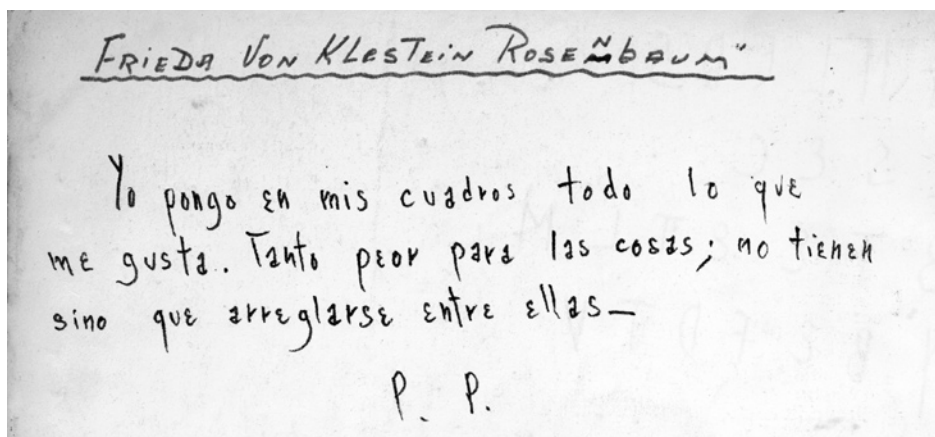 FRIEDA VON KLESTEIN ROSENBAUM"
Yo pongo en mis cuadros todo lo que
me gusta. Tanto peor para las cosas; no tienen
sino que arreglarse entre ellas—
P. P.